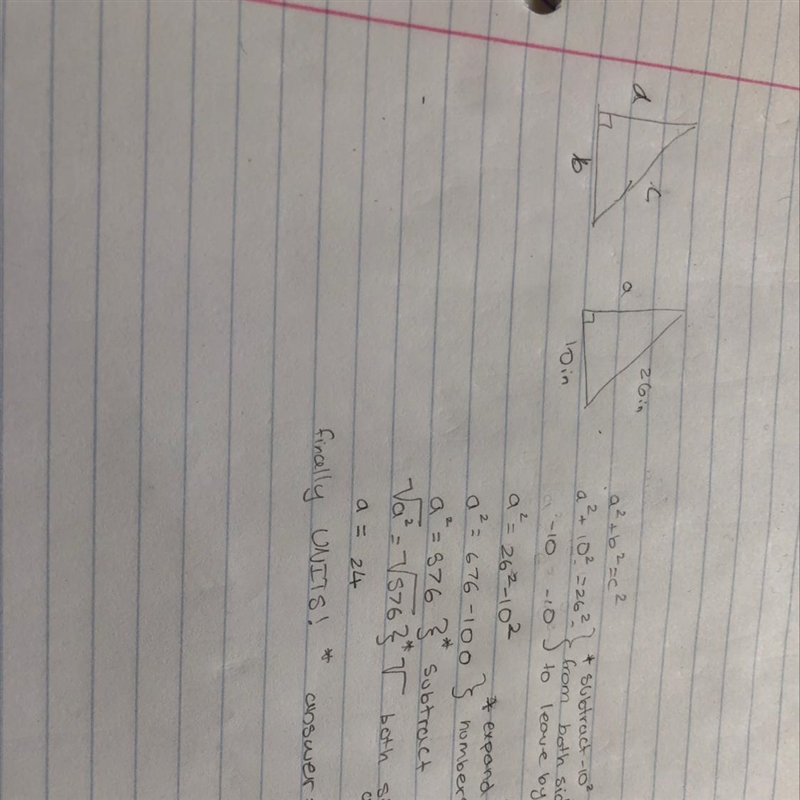 a
b
c
a
10in
26in
a² + b² = c²
a² + 10² = 26² } * subtract -10²
-10 = -10 } from both
to leave by
a² = 26² - 10²
a² = 676 - 100 } * expand
a² = 576 } * subtract
√a² = √576 } * √ both
a = 24
finally UNITS! * answer